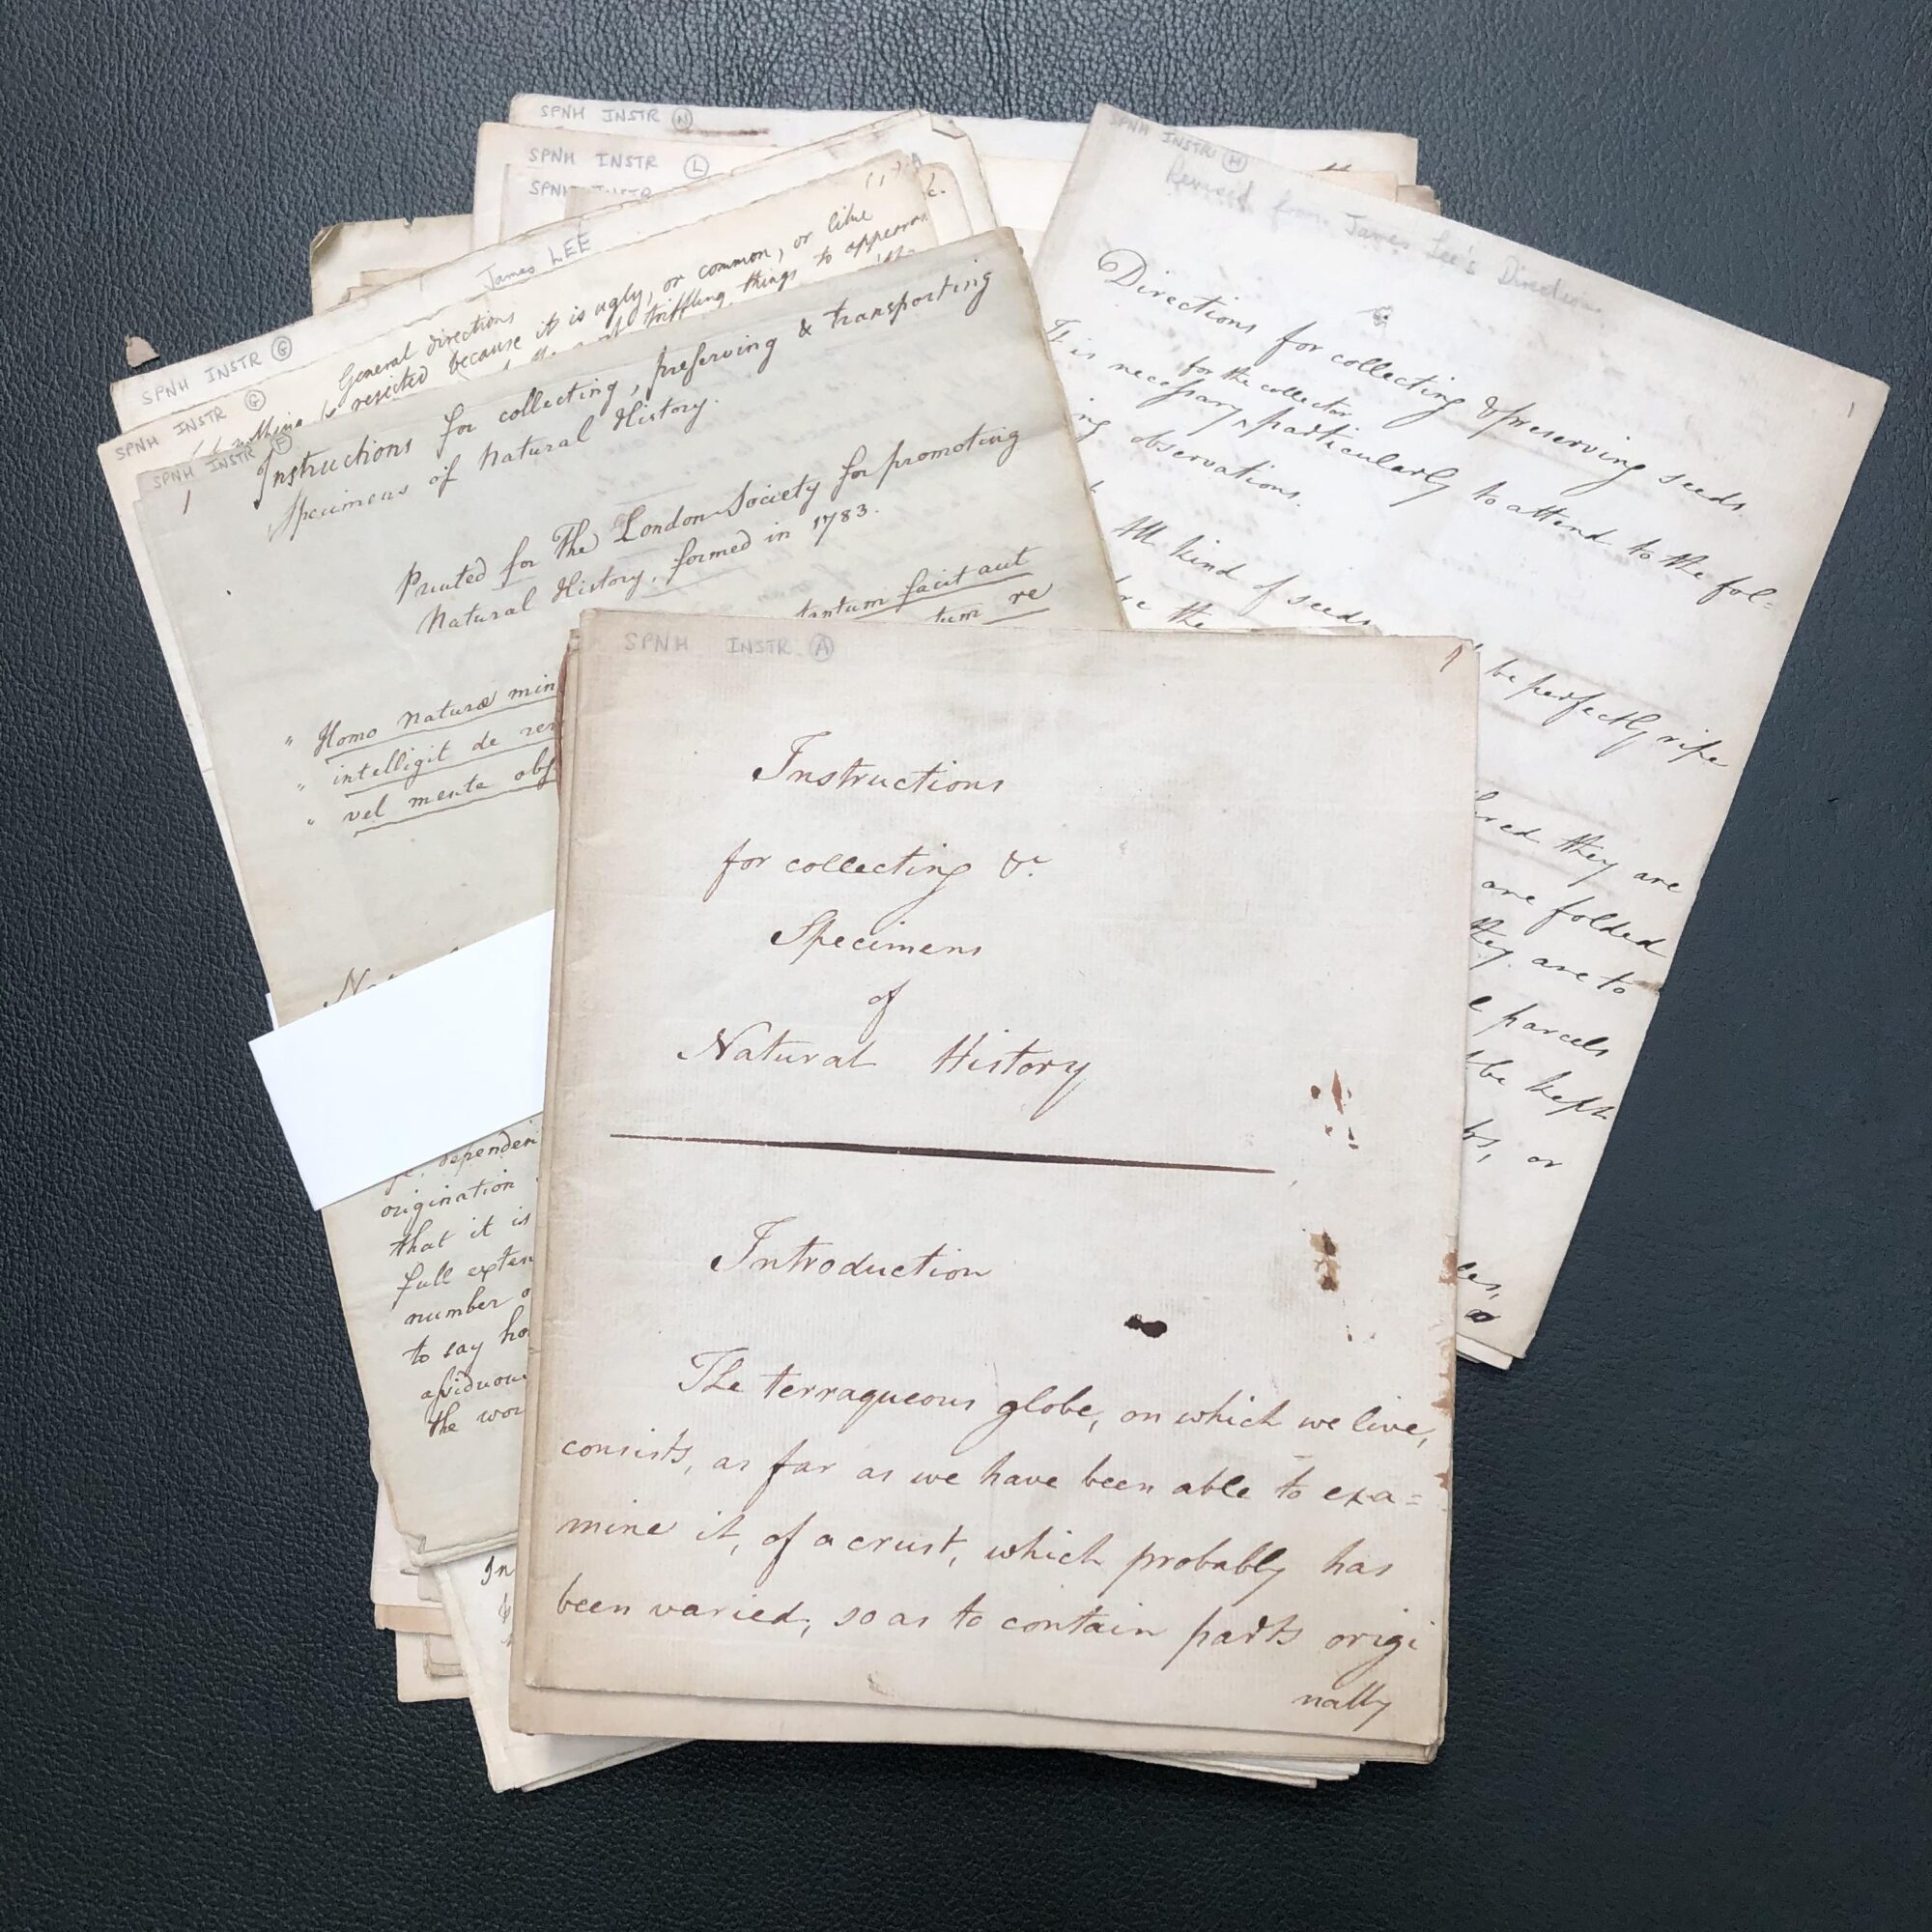 SPNH INSTR N
SPNH INSTR L
SPNH INSTR
James LEE
SPNH INSTR G
General directions
nothing be rejected because it is ugly, or common, or like
trifling things to appearan
SPNH INSTR G
SPNH INSTR F
1
Instructions for collecting, preserving & transporting
Specimens of Natural History.
Printed for The London Society for promoting
Natural History, formed in 1783.
tantum facit aut
tum re
" Homo naturæ min
" intelligit de rer
" vel mente obs
dependen
origination
that it is
full exten
number o
to say ho
assiduous
the wor
In
SPNH INSTR H
Revised from James Lee's Directions
1
Directions for collecting & preserving seeds
for the collector
It is necessary ^ particularly to attend to the fol=
ing observations.
All kind of seeds
be perfectly ripe
re the
they are
are folded
they are to
parcels
be kept
or
SPNH INSTR. A
1
Instructions
for collecting &c
Specimens
of
Natural History
Introduction
The terraqueous globe, on which we live,
consists, as far as we have been able to exa=
mine it, of a crust, which probably has
been varied, so as to contain parts origi
nally